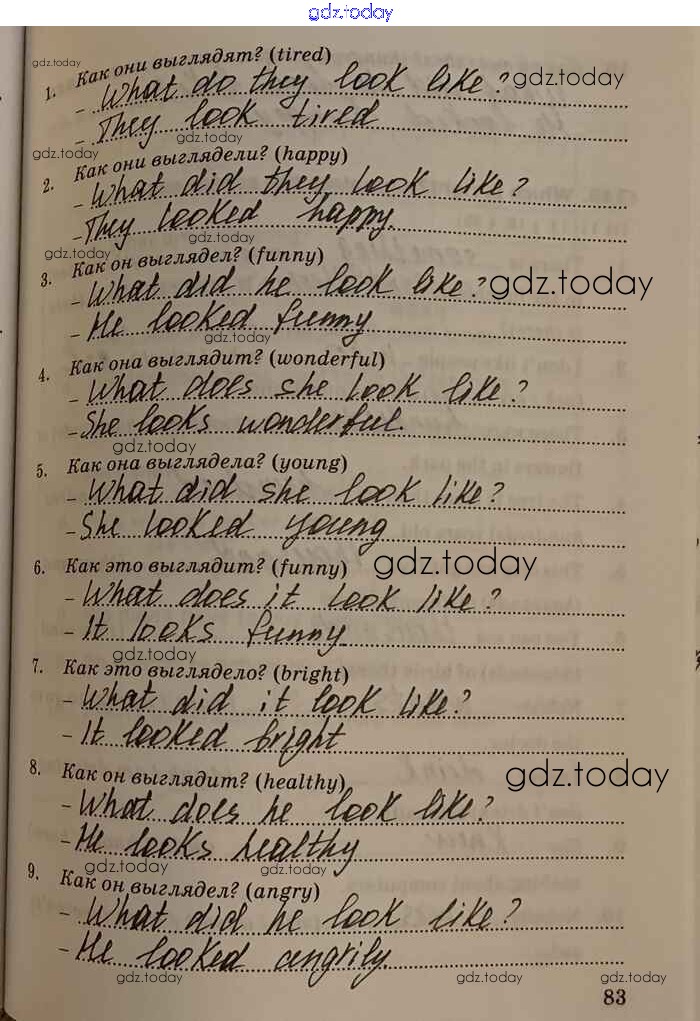 gdz.today
gdz.today
1. Как они выглядят? (tired)
- What do they look like? gdz.today
- They look tired
gdz.today gdz.today
2. Как они выглядели? (happy)
- What did they look like?
- They looked happy.
gdz.today gdz.today
3. Как он выглядел? (funny)
- What did he look like? gdz.today
- He looked funny
gdz.today
4. Как она выглядит? (wonderful)
- What does she look like?
- She looks wonderful.
gdz.today
5. Как она выглядела? (young)
- What did she look like?
- She looked young
6. Как это выглядит? (funny) gdz.today
- What does it look like?
- It looks funny
gdz.today
7. Как это выглядело? (bright)
- What did it look like?
- It looked bright
8. Как он выглядит? (healthy) gdz.today
- What does he look like?
- He looks healthy
gdz.today gdz.today
9. Как он выглядел? (angry)
- What did he look like?
- He looked angrily
gdz.today gdz.today gdz.today
83